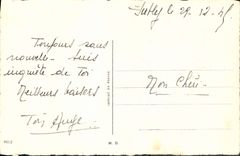 le 29. 12. 45
Toujours sans
nouvelle - suis
inquiète de Toi
Meilleurs baisers
Toi
Mon Chéri -
M. D